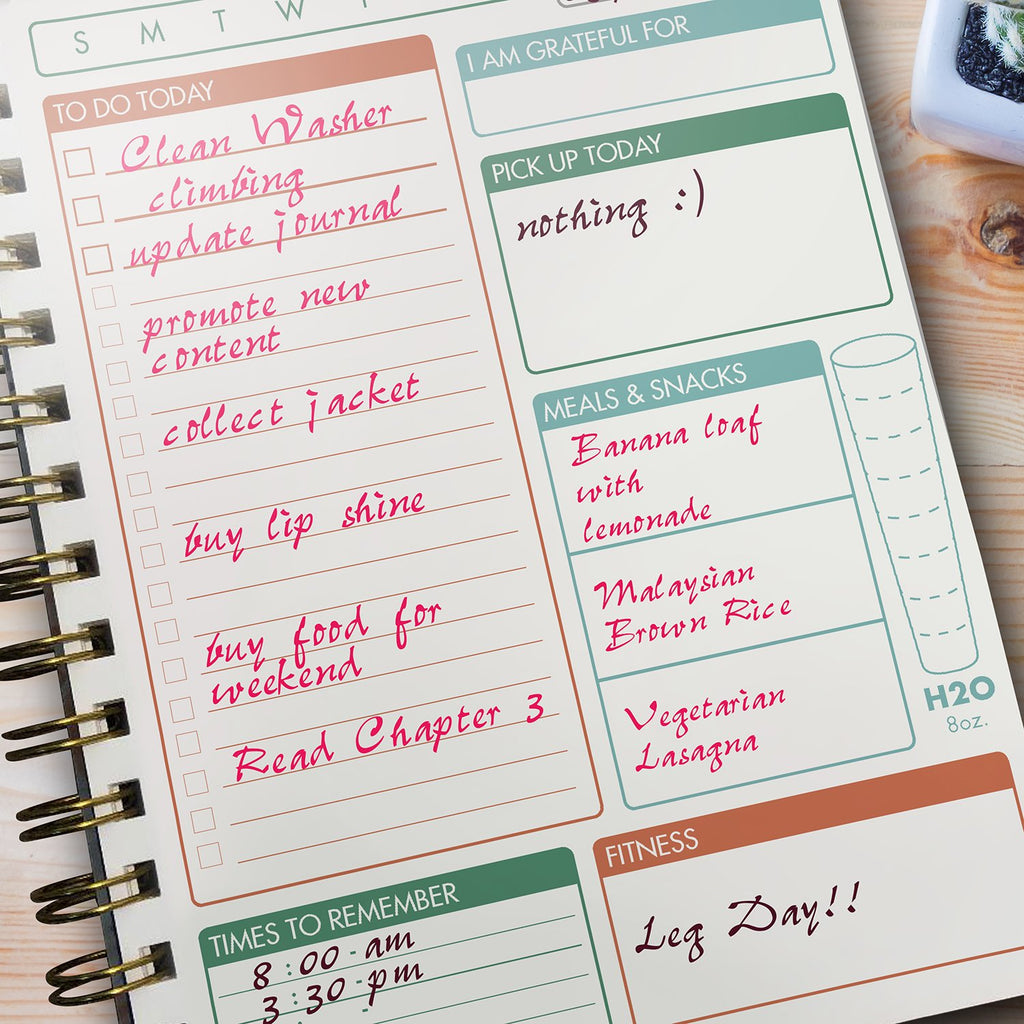 S M T W T
TO DO TODAY
Clean Washer
climbing
update journal
promote new
content
collect jacket
buy lip shine
buy food for
weekend
Read Chapter 3
TIMES TO REMEMBER
8:00-am
3:30-pm
I AM GRATEFUL FOR
PICK UP TODAY
nothing :)
MEALS & SNACKS
Banana loaf
with
lemonade
Malaysian
Brown Rice
Vegetarian
Lasagna
H2O
8oz.
FITNESS
Leg Day!!